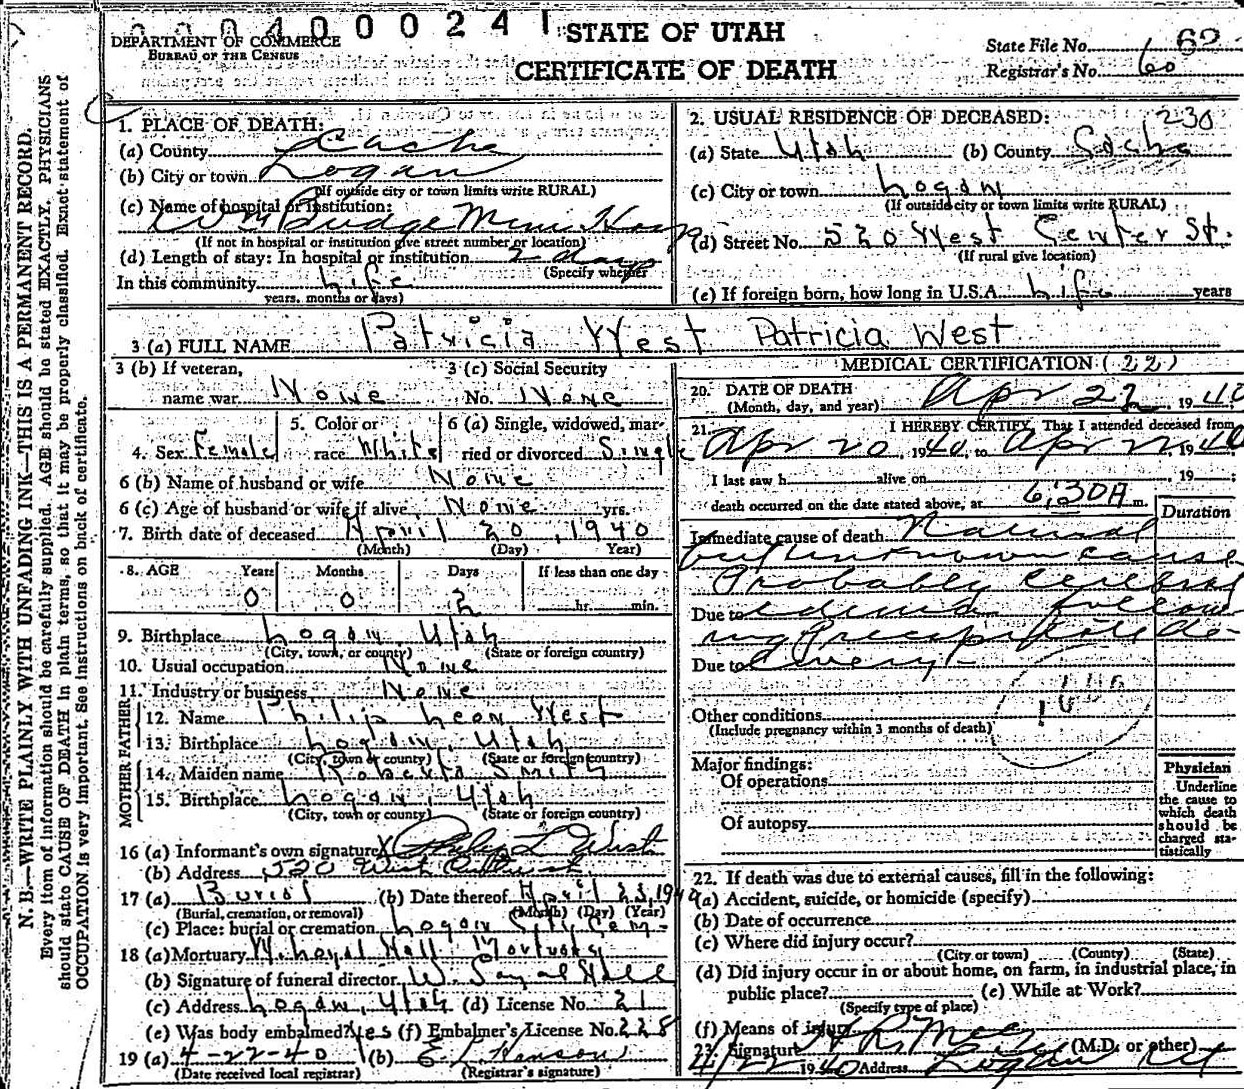 0004000241
STATE OF UTAH
CERTIFICATE OF DEATH
DEPARTMENT OF COMMERCE
BUREAU OF THE CENSUS
State File No. 62
Registrar's No. 60
N. B.—WRITE PLAINLY WITH UNFADING INK—THIS IS A PERMANENT RECORD.
Every item of information should be carefully supplied. AGE should be stated EXACTLY. PHYSICIANS
should state CAUSE OF DEATH in plain terms, so that it may be properly classified. Exact statement of
OCCUPATION is very important. See instructions on back of certificate.
1. PLACE OF DEATH:
(a) County Cache
(b) City or town Logan
(If outside city or town limits write RURAL)
(c) Name of hospital or institution:
Wm Budge Mem Hosp
(If not in hospital or institution give street number or location)
(d) Length of stay: In hospital or institution 2 days
(Specify whether
In this community life
years, months or days)
2. USUAL RESIDENCE OF DECEASED: 230
(a) State Utah (b) County Cache
(c) City or town Logan
(If outside city or town limits write RURAL)
(d) Street No. 520 West Center St.
(If rural give location)
(e) If foreign born, how long in U.S.A. Life years
3 (a) FULL NAME Patricia West Patricia West
3 (b) If veteran, name war None
3 (c) Social Security No. None
4. Sex Female
5. Color or race White
6 (a) Single, widowed, married or divorced Single
6 (b) Name of husband or wife None
6 (c) Age of husband or wife if alive None yrs.
7. Birth date of deceased April 20, 1940
(Month) (Day) Year)
8. AGE Years Months Days If less than one day
0 0 2 hr. min.
9. Birthplace Logan, Utah
(City, town, or county) (State or foreign country)
10. Usual occupation None
11. Industry or business None
FATHER
12. Name Philip Leon West
13. Birthplace Logan, Utah
(City, town or county) (State or foreign country)
MOTHER
14. Maiden name Roberta Smith
15. Birthplace Logan, Utah
(City, town or county) (State or foreign country)
16 (a) Informant's own signature X Philip L West
(b) Address 520 West
17 (a) Burial (b) Date thereof April 23, 1940
(Burial, cremation, or removal) (Month) (Day) (Year)
(c) Place: burial or cremation Logan City Cem-
18 (a) Mortuary W. Loyal Hall Mortuary
(b) Signature of funeral director W. Loyal Hall
(c) Address Logan, Utah (d) License No. 21
(e) Was body embalmed? Yes (f) Embalmer's License No. 228
19 (a) 4-22-40 (b) E L Hanson
(Date received local registrar) (Registrar's signature)
MEDICAL CERTIFICATION (22)
20. DATE OF DEATH
(Month, day, and year) Apr 22, 1940
21. I HEREBY CERTIFY, That I attended deceased from
Apr 20, 1940, to Apr 22, 1940
I last saw h alive on , 19 ;
death occurred on the date stated above, at 6:30A m.
Duration
Immediate cause of death Natural
but unknown cause
Probably cerebral
Due to edema follow
ing Precipitate de-
Due to livery-
160
Other conditions
(Include pregnancy within 3 months of death)
Major findings:
Of operations
Of autopsy
Physician
Underline
the cause to
which death
should be
charged sta-
tistically
22. If death was due to external causes, fill in the following:
(a) Accident, suicide, or homicide (specify)
(b) Date of occurrence
(c) Where did injury occur?
(City or town) (County) (State)
(d) Did injury occur in or about home, on farm, in industrial place, in
public place? (e) While at Work?
(Specify type of place)
(f) Means of injury
23. Signature (M.D. or other)
4/22 1940 Address Logan Ut